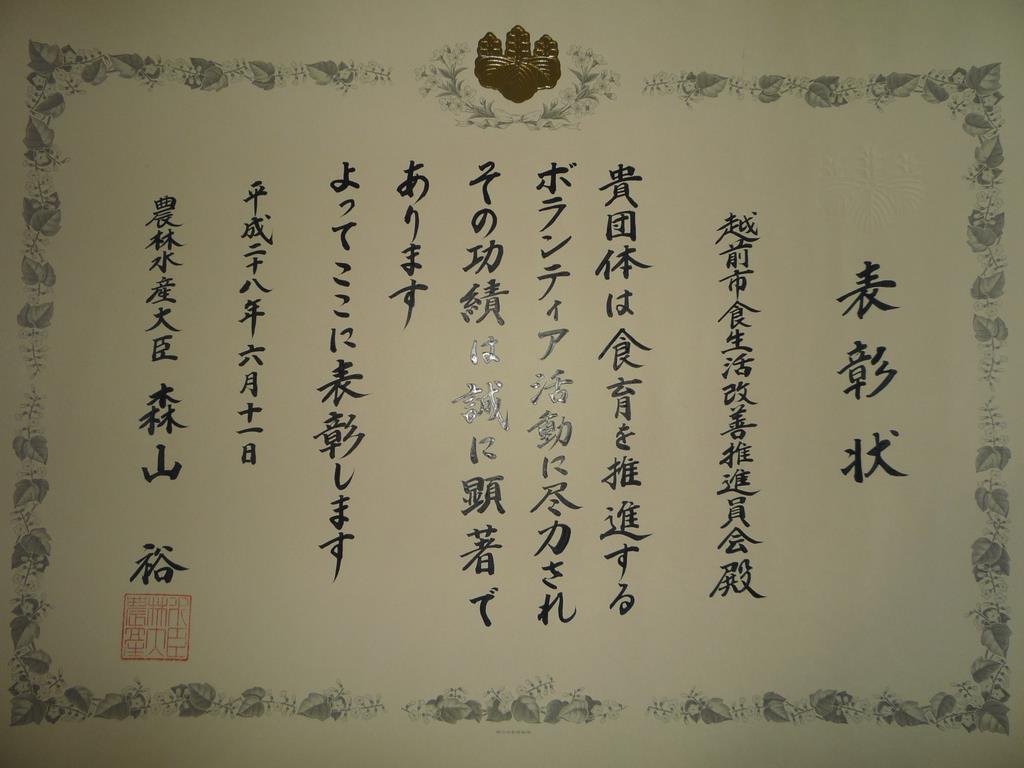 表彰状
越前市食生活改善推進員会殿
貴団体は食育を推進する
ボランティア活動に尽力され
その功績は誠に顕著で
あります
よってここに表彰します
平成二十八年六月十一日
農林水産大臣 森山 裕